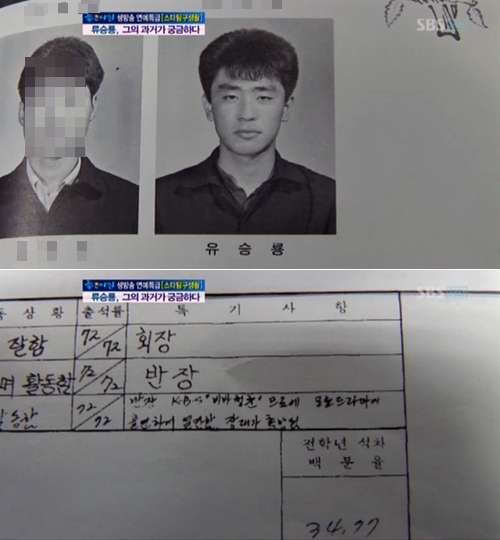 생방송 연예특급 [스타탐구생활]
류승룡, 그의 과거가 궁금하다
SBS
유 승 룡
생방송 연예특급 [스타탐구생활]
류승룡, 그의 과거가 궁금하다
SBS
동 상 황 출석율 특 기 사 항
잘함 72/72 회장
며 활동함 72/72 반장
72/72 반장 K·B·S "비바청춘" 프로에 모노드라마에
출연하여 열연함.
전학년 석차
백 분 율
34.77